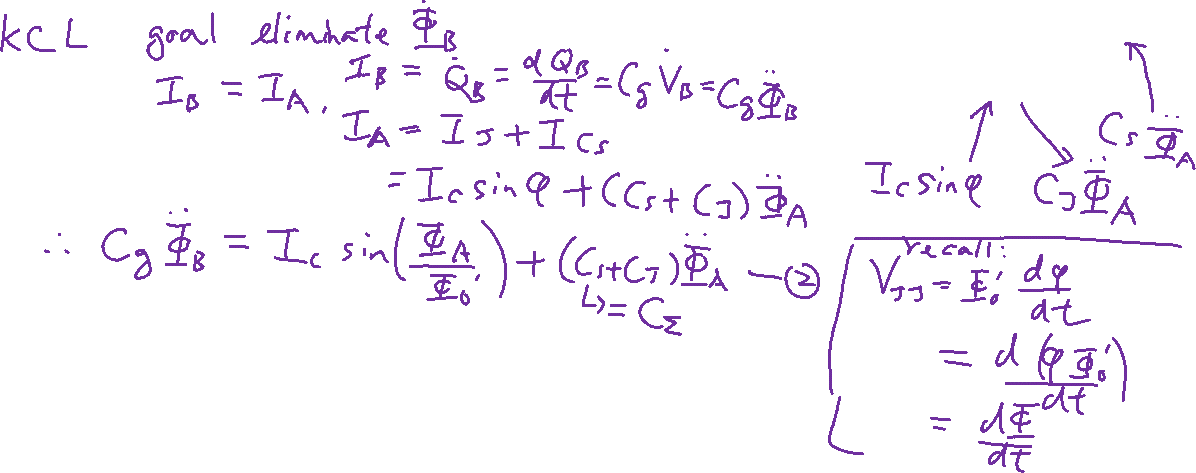 KCL goal eliminate Φ̈_B
I_B = I_A, I_B = Q̇_B = dQ_B/dt = C_g V̇_B = C_g Φ̈_B
I_A = I_J + I_Cs
= I_c sinφ + (C_s + C_J) Φ̈_A
∴ C_g Φ̈_B = I_c sin(Φ_A/Φ_0') + (C_s + C_J) Φ̈_A — ②
↳ = C_Σ
I_c sinφ C_J Φ̈_A C_s Φ̈_A
recall:
V_JJ = Φ_0' dφ/dt
= d(φ Φ_0')/dt
= dΦ/dt